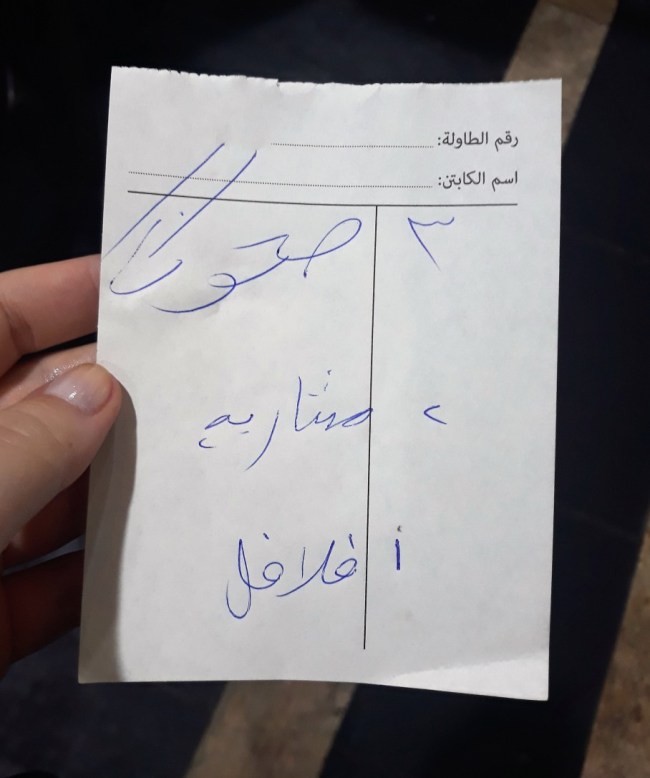 رقم الطاولة:
اسم الكابتن:
٣ صحون
٢ مشاريب
١ فلافل